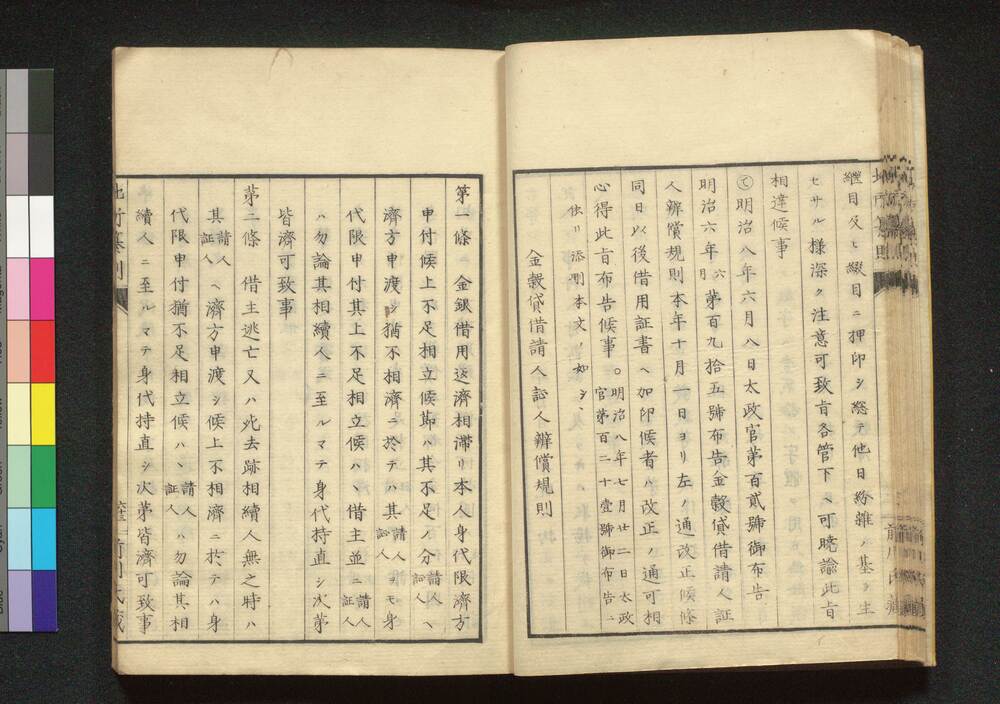 繼目又ヒ綴目ニ押印シ總テ他日紛雜ノ基ヲ生
セサル様深ク注意可致旨各管下ヘ可曉諭此旨
相達候事
明治八年六月八日太政官第百貳號御布告
明治六年六月第百九拾五號布告金穀貸借請人証
人辨償規則本年十月一日ヨリ左ノ通改正候條
同日以後借用証書ヘ加印候者ハ改正ノ通可相
心得此旨布告候事。明治八年七月廿二日太政官第百二十壹號御布告ニ
依リ添刪本文ノ如シ、
金穀貸借請人証人辨償規則
第一條 金銀借用返濟相滯リ本人身代限濟方
申付候上不足相立候節ハ其不足ノ分請人証人ヘ
濟方申渡シ猶不相濟ニ於テハ其請人証人ヲモ身
代限申付其上不足相立候ハヽ借主並ニ請人証人
ハ勿論其相續人ニ至ルマテ身代持直シ次第
皆濟可致事
第二條 借主逃亡又ハ死去跡相續人無之時ハ
其請人証人ヘ濟方申渡シ候上不相濟ニ於テハ身
代限申付猶不足相立候ハヽ請人証人ハ勿論其相
續人ニ至ルマテ身代持直シ次第皆濟可致事